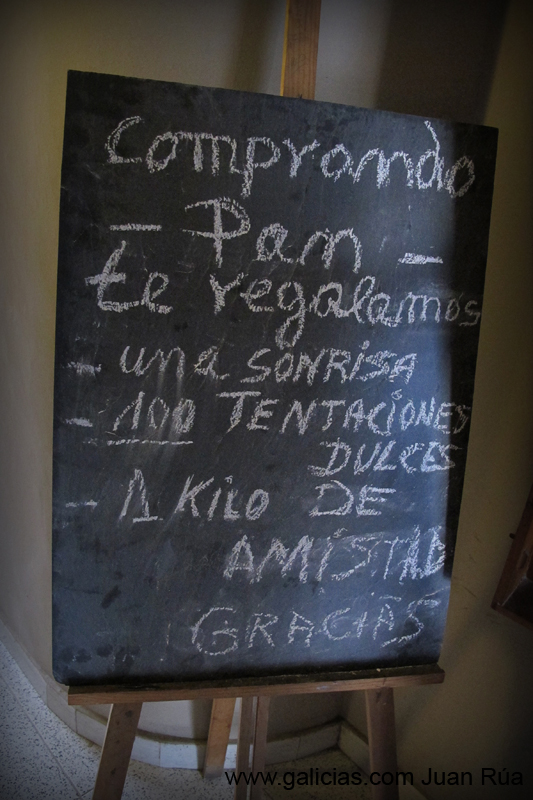 Comprando
- Pan -
te regalamos
- una SONRISA
- 100 TENTACIONES
DULCES
- 1 KILO DE
AMISTAD
GRACIAS
www.galicias.com Juan Rúa